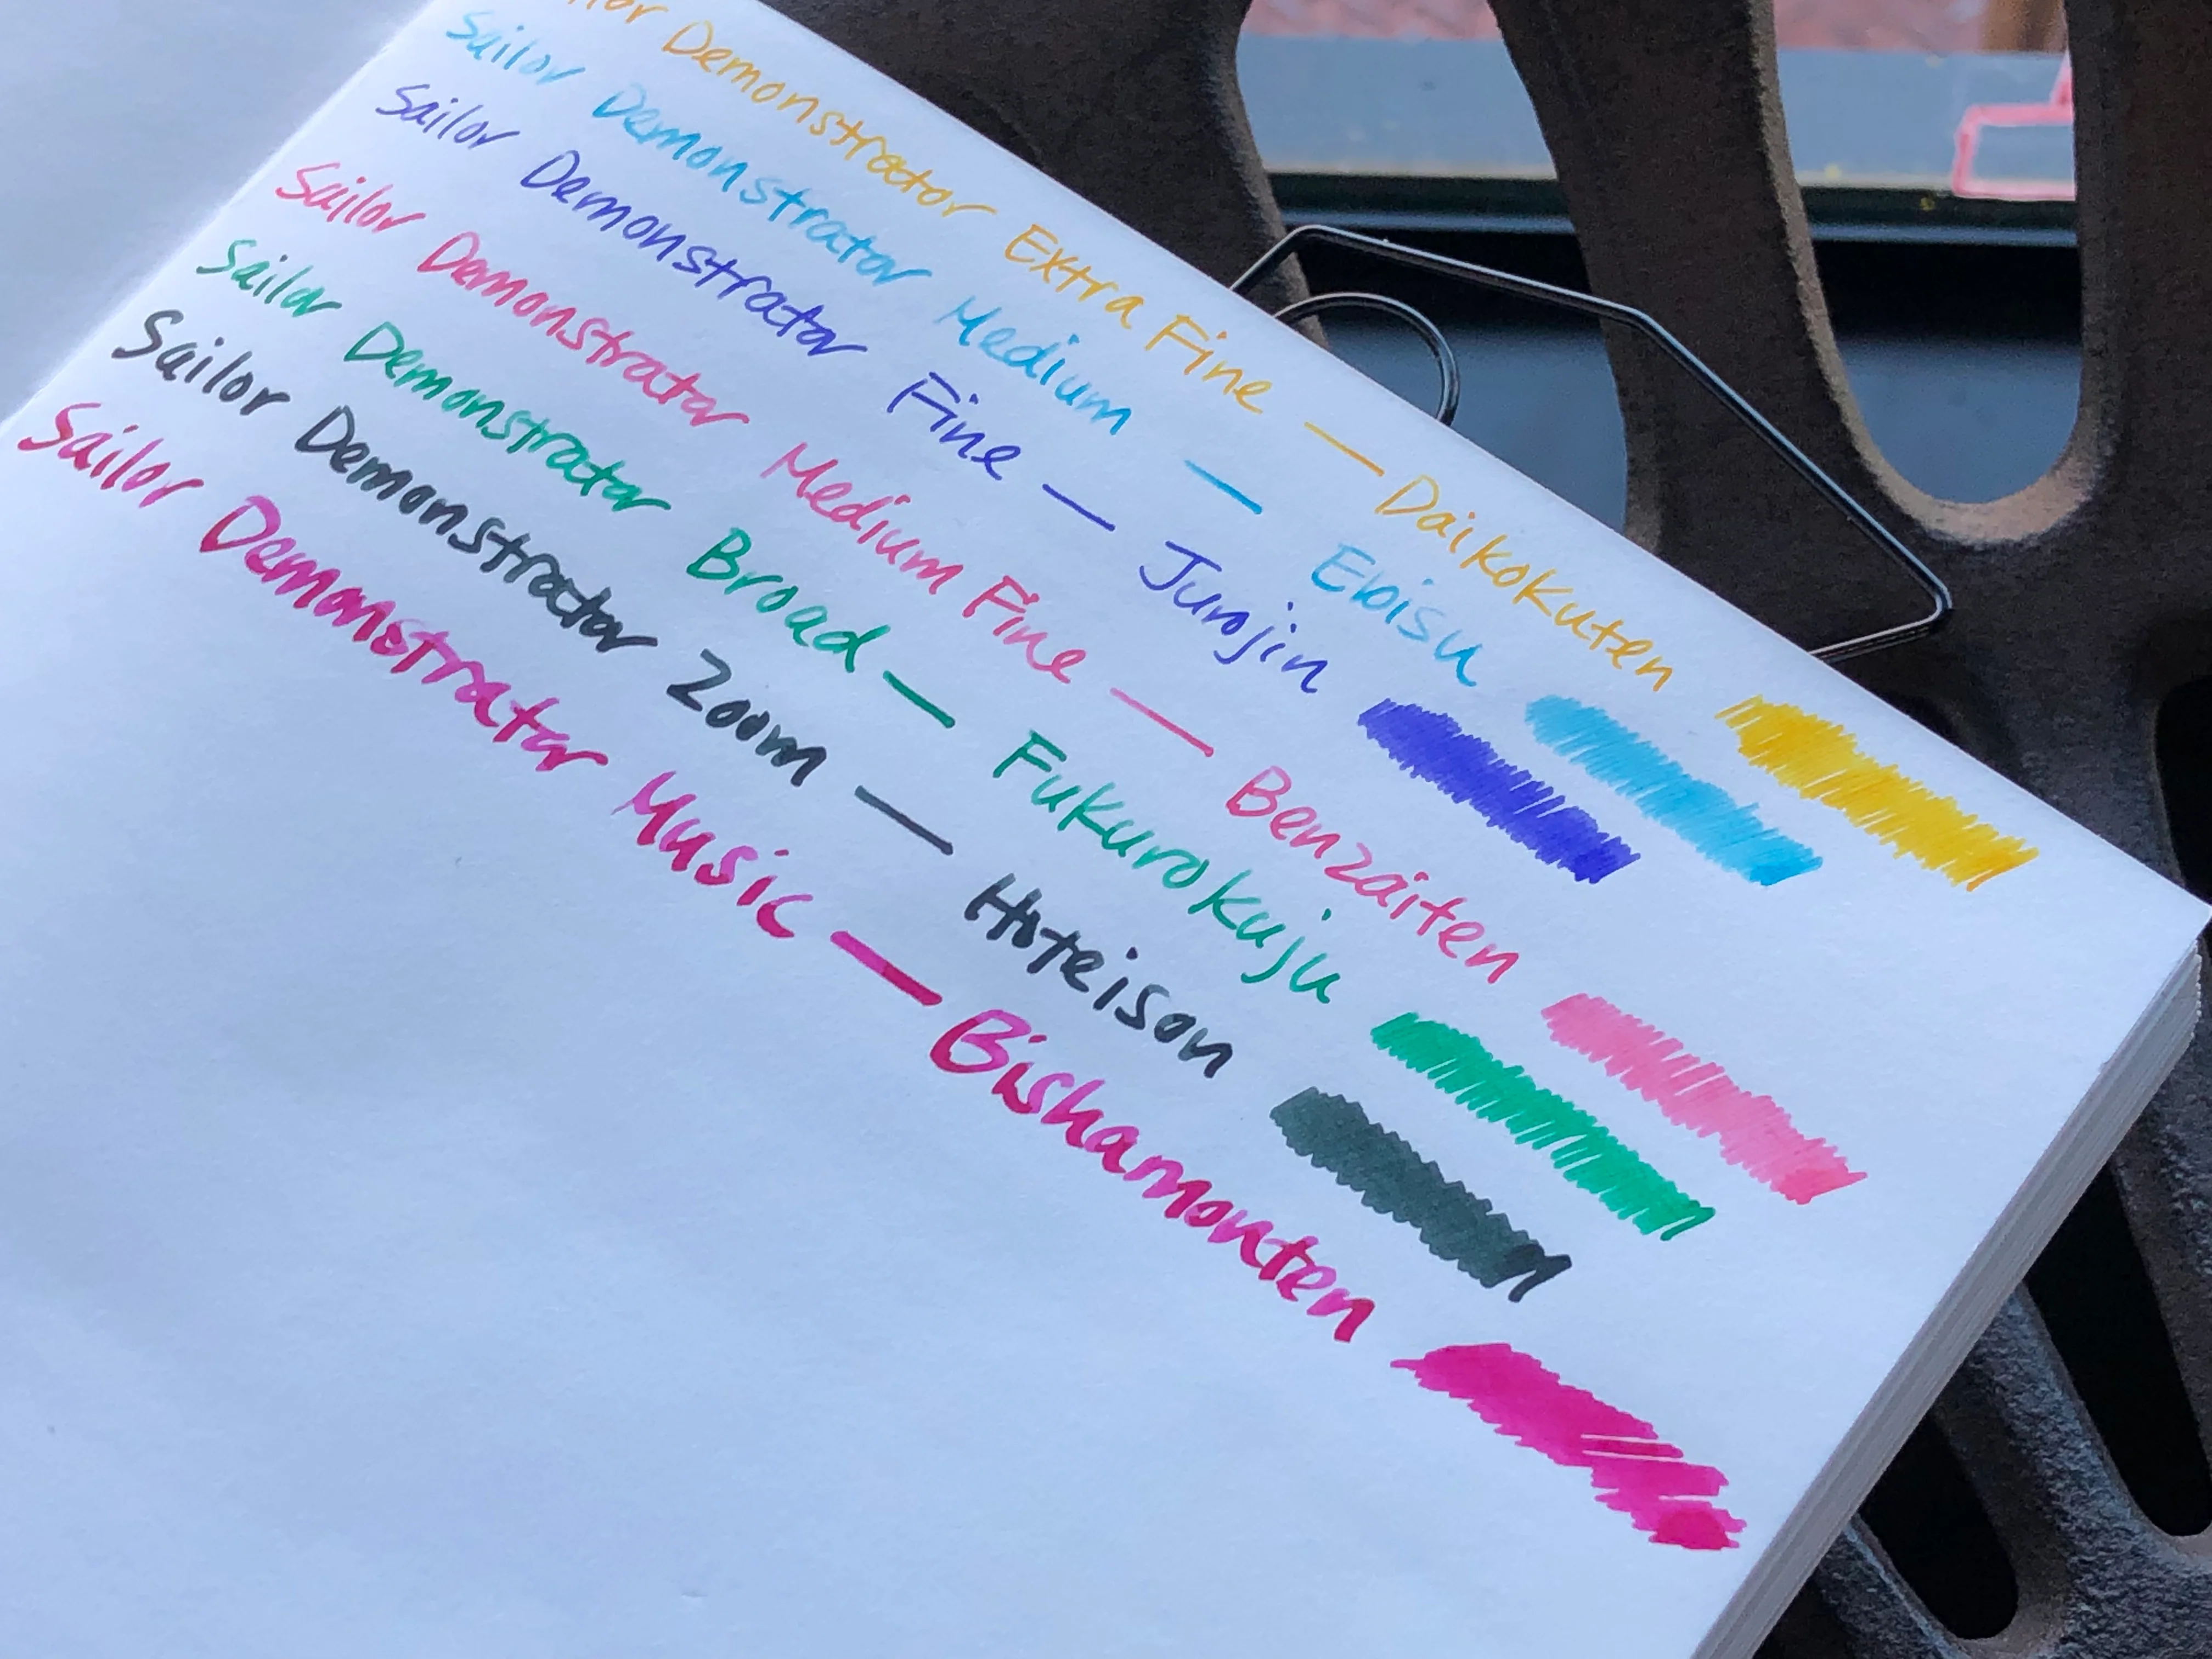 Demonstrator Extra Fine — Daikokuten
Sailor Demonstrator Medium — Ebisu
Sailor Demonstrator Fine — Jurojin
Sailor Demonstrator Medium Fine — Benzaiten
Sailor Demonstrator Broad — Fukurokuju
Sailor Demonstrator Zoom — Hoteison
Sailor Demonstrator Music — Bishamonten